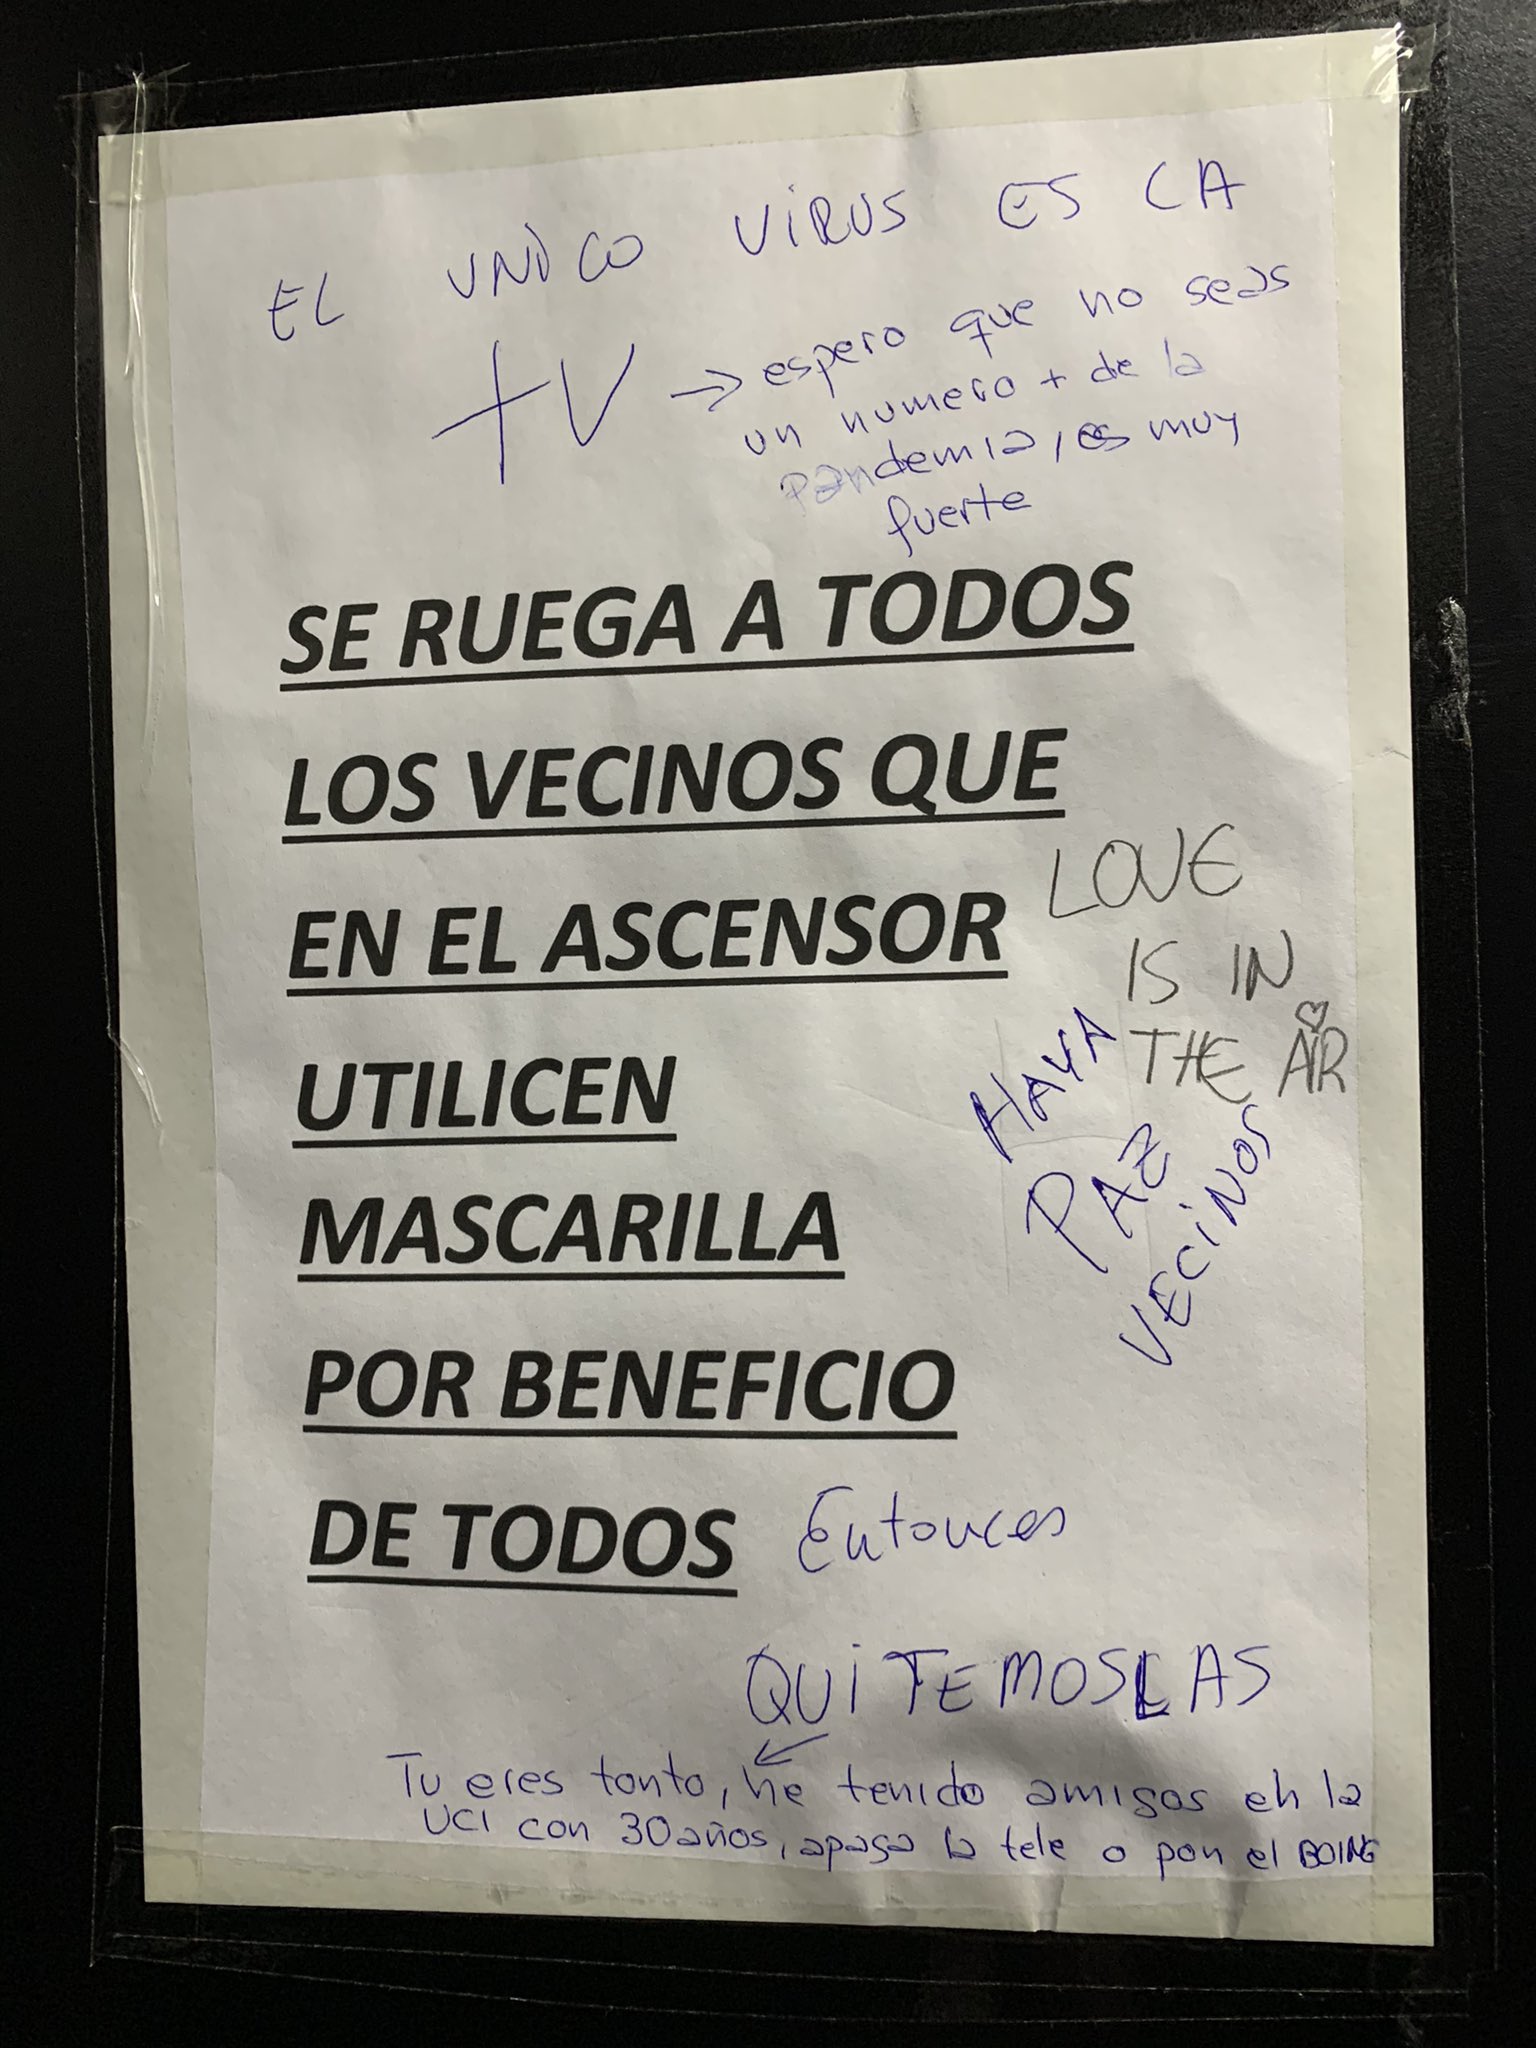 EL UNICO VIRUS ES LA
TV → espero que no seas
un numero + de la
pandemia, es muy
fuerte
SE RUEGA A TODOS
LOS VECINOS QUE
EN EL ASCENSOR
UTILICEN
MASCARILLA
POR BENEFICIO
DE TODOS
LOVE
IS IN
THE AIR
HAYA
PAZ
VECINOS
Entonces
QUITEMOSLAS
Tu eres tonto, he tenido amigos en la
UCI con 30 años, apaga la tele o pon el BOING